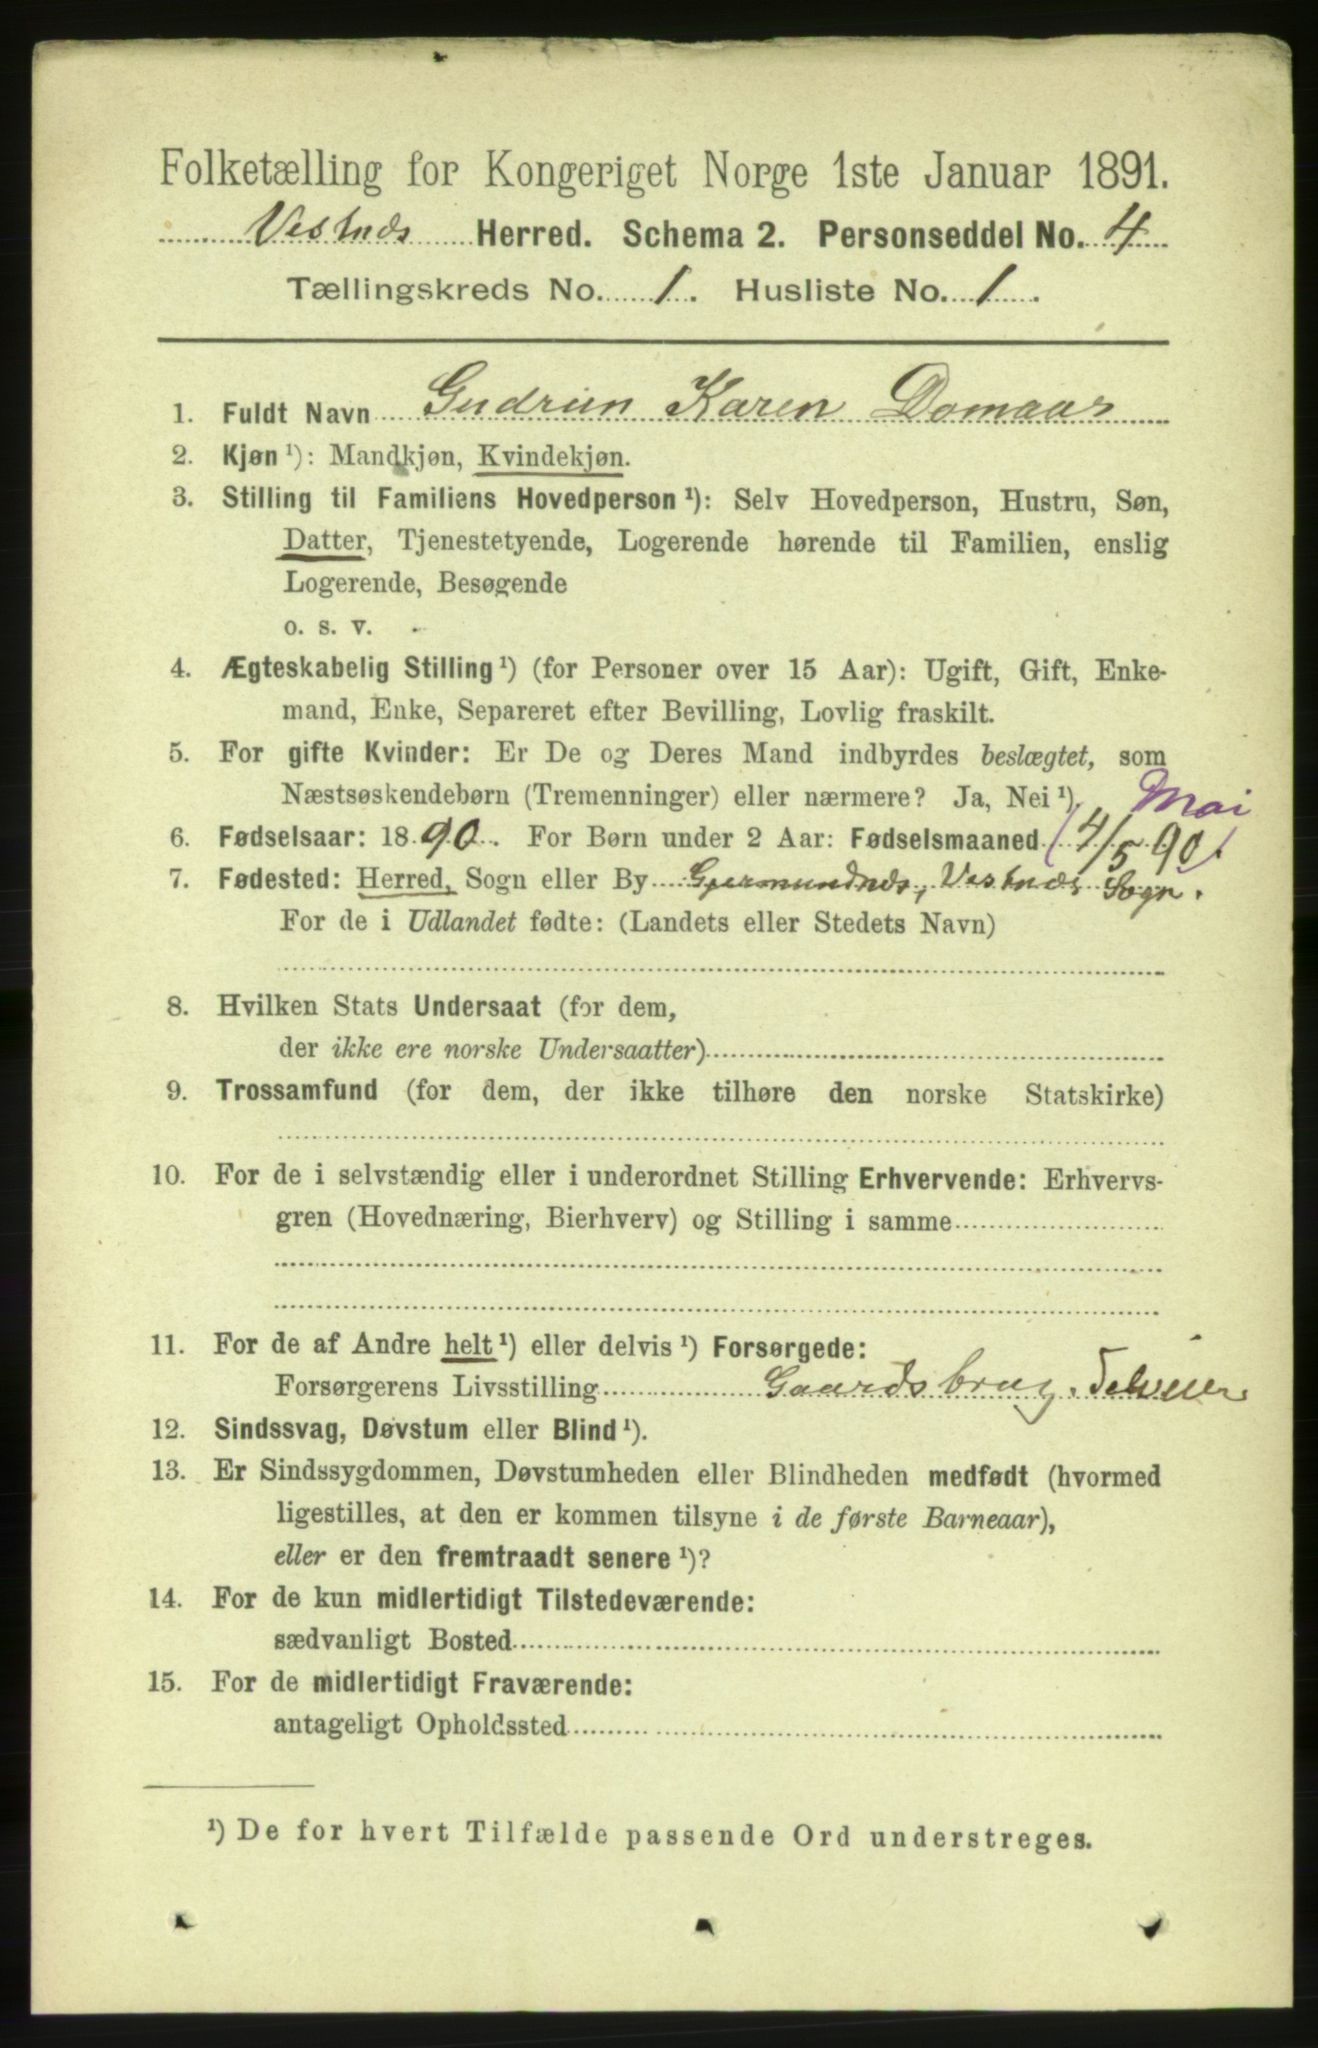 Folketælling for Kongeriget Norge 1ste Januar 1891.
Vestnæs Herred. Schema 2. Personseddel No. 4
Tællingskreds No. 1. Husliste No. 1.
1. Fuldt Navn Gudrun Karen Domaas
2. Kjøn ¹): Mandkjøn, Kvindekjøn.
3. Stilling til Familiens Hovedperson ¹): Selv Hovedperson, Hustru, Søn,
Datter, Tjenestetyende, Logerende hørende til Familien, enslig
Logerende, Besøgende
o. s. v.
4. Ægteskabelig Stilling ¹) (for Personer over 15 Aar): Ugift, Gift, Enke-
mand, Enke, Separeret efter Bevilling, Lovlig fraskilt.
5. For gifte Kvinder: Er De og Deres Mand indbyrdes beslægtet, som
Næstsøskendebørn (Tremenninger) eller nærmere? Ja, Nei ¹).
Mai
6. Fødselsaar: 1890. For Børn under 2 Aar: Fødselsmaaned (4/5 90)
7. Fødested: Herred, Sogn eller By Gjermundnæs, Vestnæs Sogn.
For de i Udlandet fødte: (Landets eller Stedets Navn)
8. Hvilken Stats Undersaat (for dem,
der ikke ere norske Undersaatter)
9. Trossamfund (for dem, der ikke tilhøre den norske Statskirke)
10. For de i selvstændig eller i underordnet Stilling Erhvervende: Erhvervs-
gren (Hovednæring, Bierhverv) og Stilling i samme
11. For de af Andre helt ¹) eller delvis ¹) Forsørgede:
Forsørgerens Livsstilling Gaardsbrug, Selveier
12. Sindssvag, Døvstum eller Blind ¹).
13. Er Sindssygdommen, Døvstumheden eller Blindheden medfødt (hvormed
ligestilles, at den er kommen tilsyne i de første Barneaar),
eller er den fremtraadt senere ¹)?
14. For de kun midlertidigt Tilstedeværende:
sædvanligt Bosted
15. For de midlertidigt Fraværende:
antageligt Opholdssted
¹) De for hvert Tilfælde passende Ord understreges.